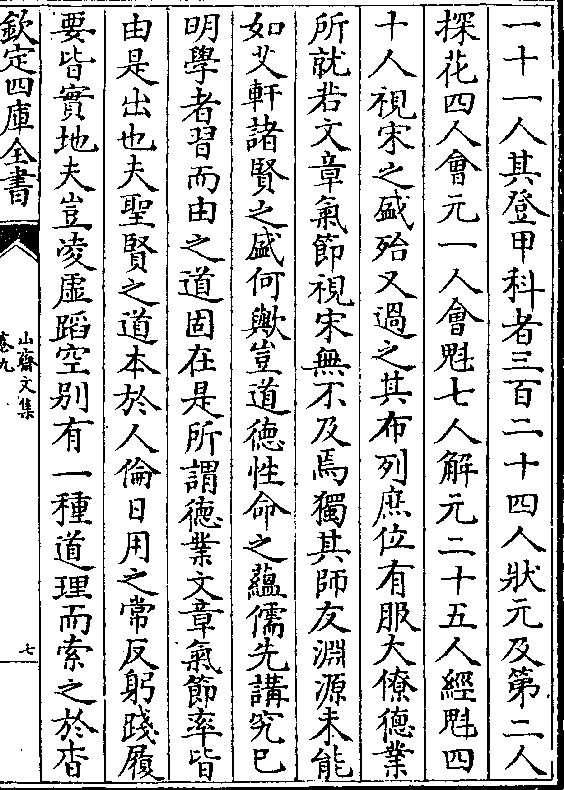 一十一人其登甲科者三百二十四人狀元及第二人
探花四人會元一人會魁七人解元二十五人經魁四
十人視宋之盛殆又過之其布列庶位有服大僚德業
所就若文章氣節視宋無不及焉獨其師友淵源未能
如艾軒諸賢之盛何歟豈道德性命之蘊儒先講究已
明學者習而由之道固在是所謂德業文章氣節率皆
由是出也夫聖賢之道本於人倫日用之常反躬踐履
要皆實地夫豈凌虛蹈空别有一種道理而索之於杳
欽定四庫全書
山齋文集
卷九
七